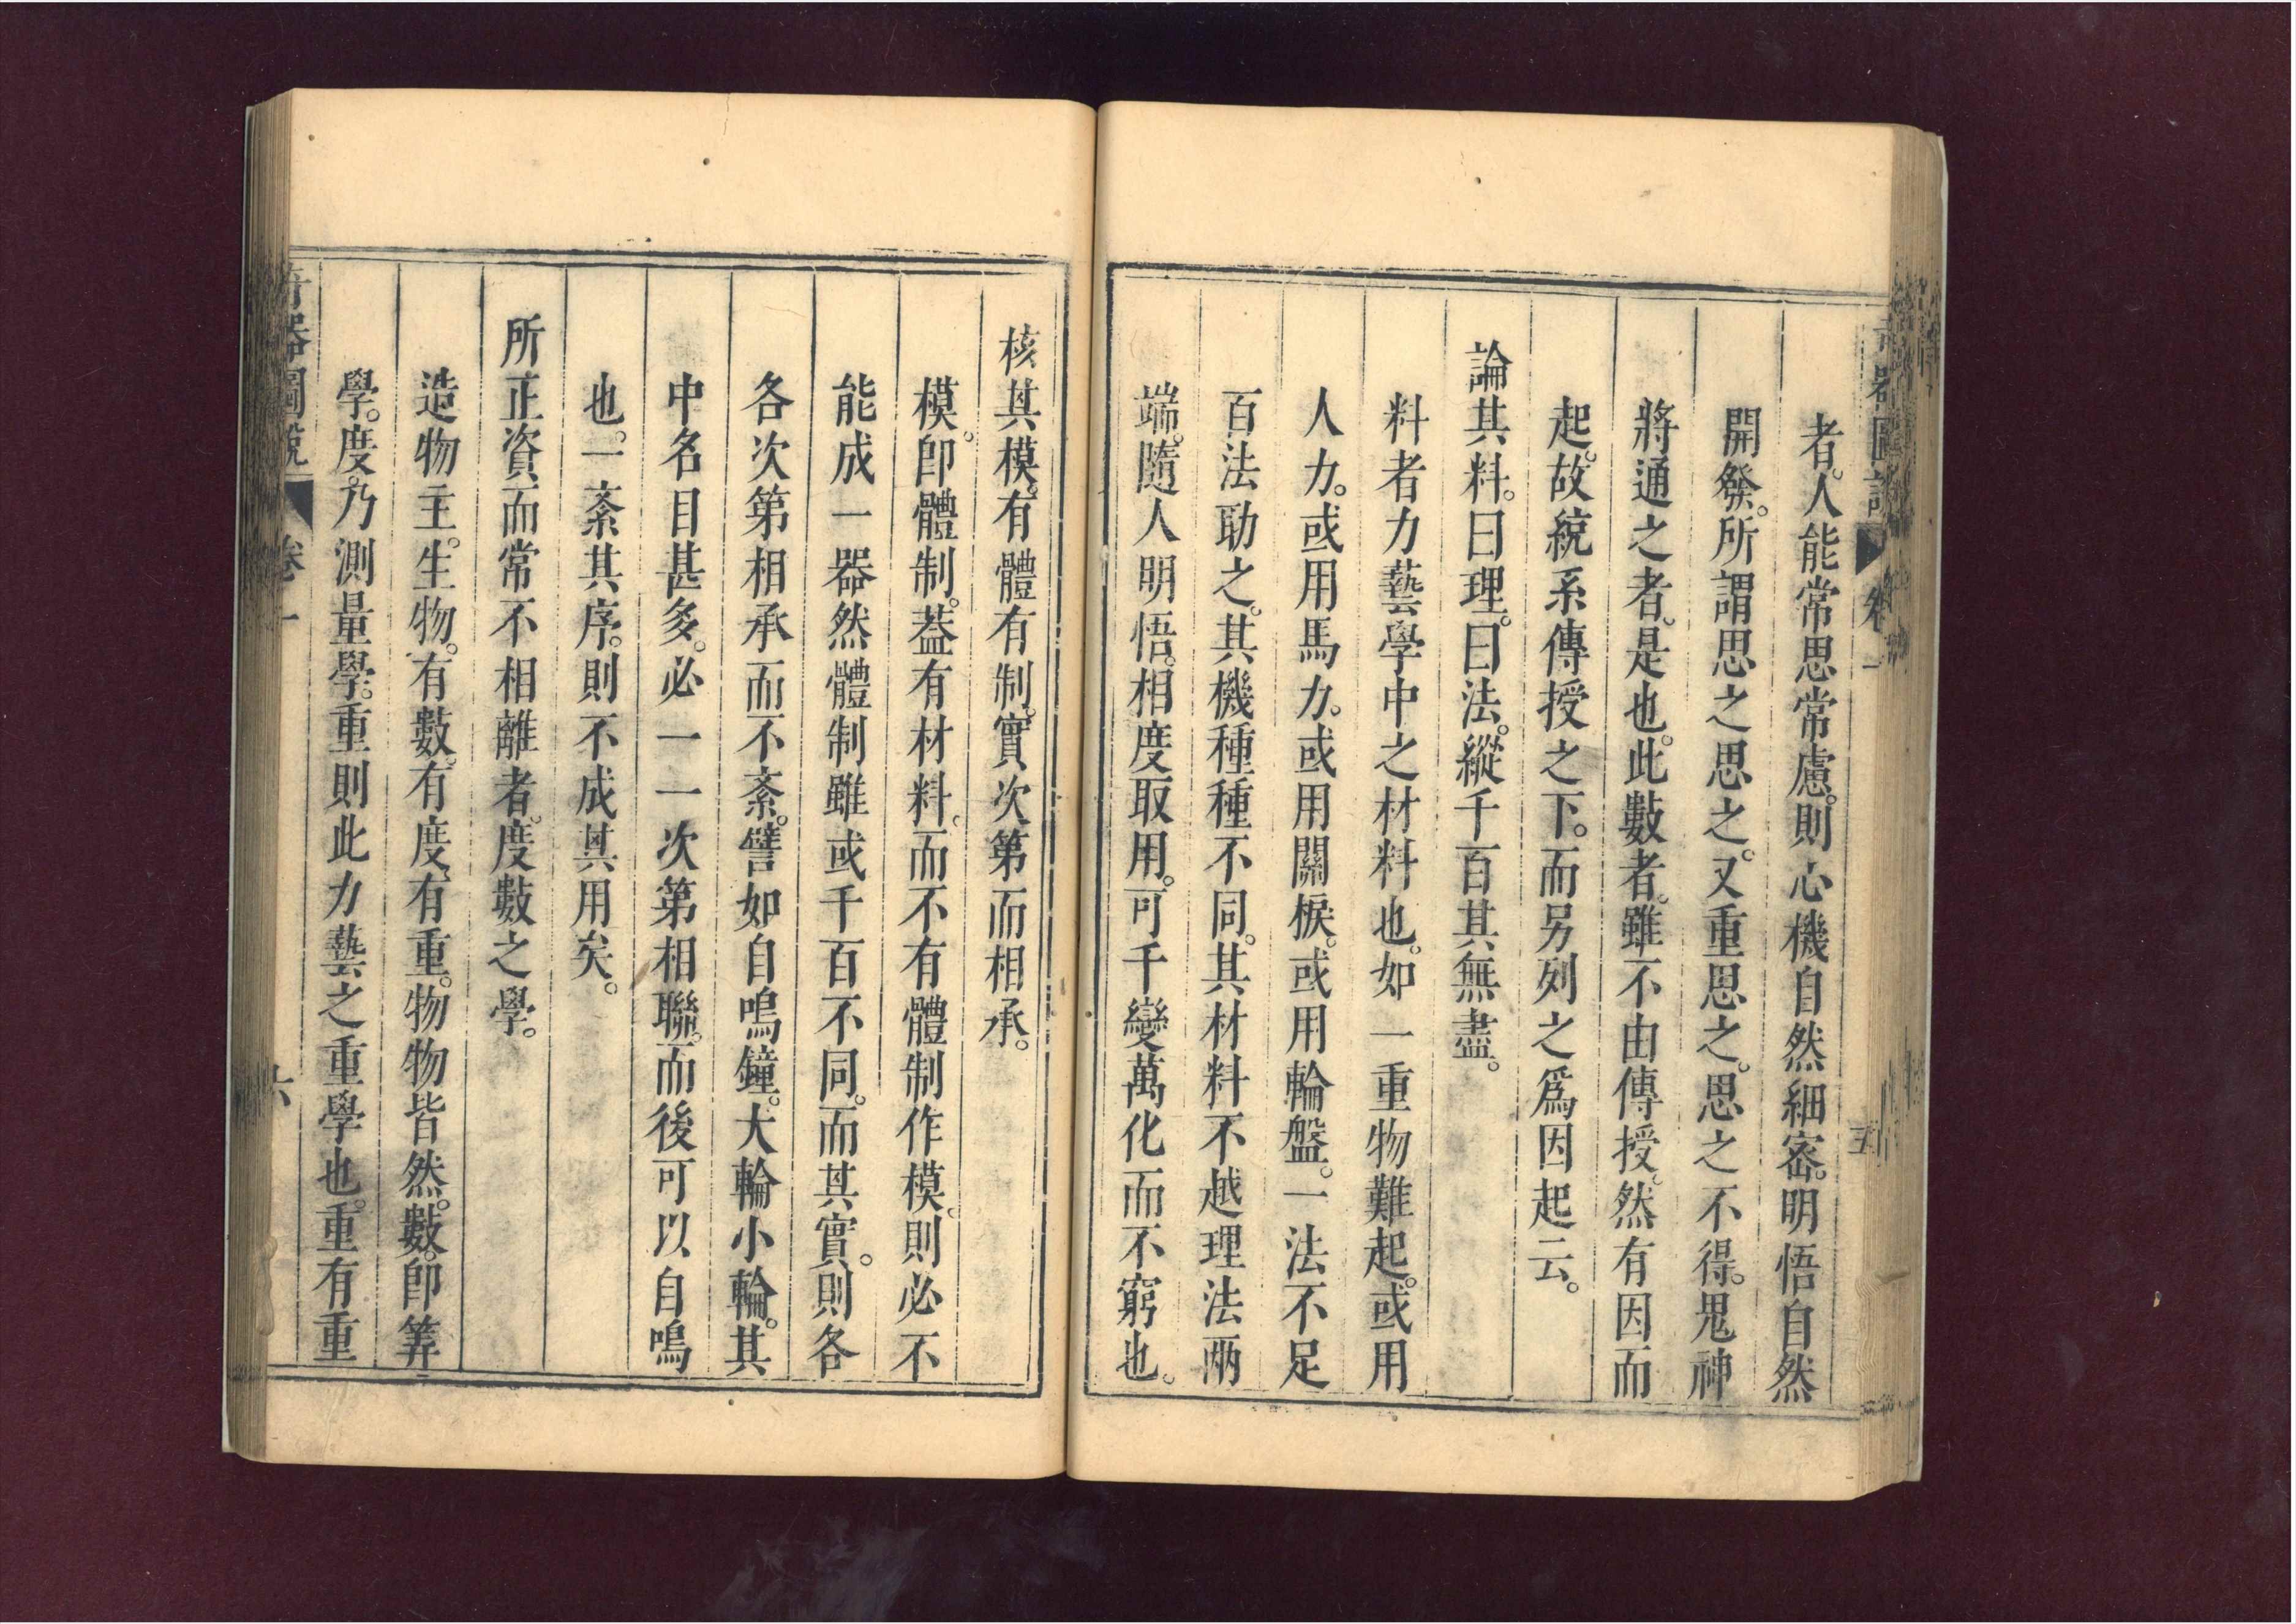 奇器圖說 卷一 五
者。人能常思常慮。則心機自然細密。明悟自然
開發。所謂思之思之。又重思之。思之不得。鬼神
將通之者。是也。此數者。雖不由傳授。然有因而
起。故統系傳授之下。而另列之爲因起云。
論其料。曰理。曰法。縱千百其無盡。
料者力藝學中之材料也。如一重物難起。或用
人力。或用馬力。或用關棙。或用輪盤。一法不足
百法助之。其機種種不同。其材料不越理法兩
端。隨人明悟。相度取用。可千變萬化而不窮也。
核其模。有體有制。實次第而相承。
模。卽體制。葢有材料。而不有體制作模。則必不
能成一器然體制雖或千百不同。而其實。則各
各次第相承而不紊。譬如自鳴鐘。大輪小輪。其
中名目甚多。必一一次第相聯。而後可以自鳴
也。一紊其序。則不成其用矣。
所正資而常不相離者。度數之學。
造物主。生物。有數。有度。有重。物物皆然。數。卽筭
學。度。乃測量學。重則此力藝之重學也。重有重
奇器圖說 卷一 六